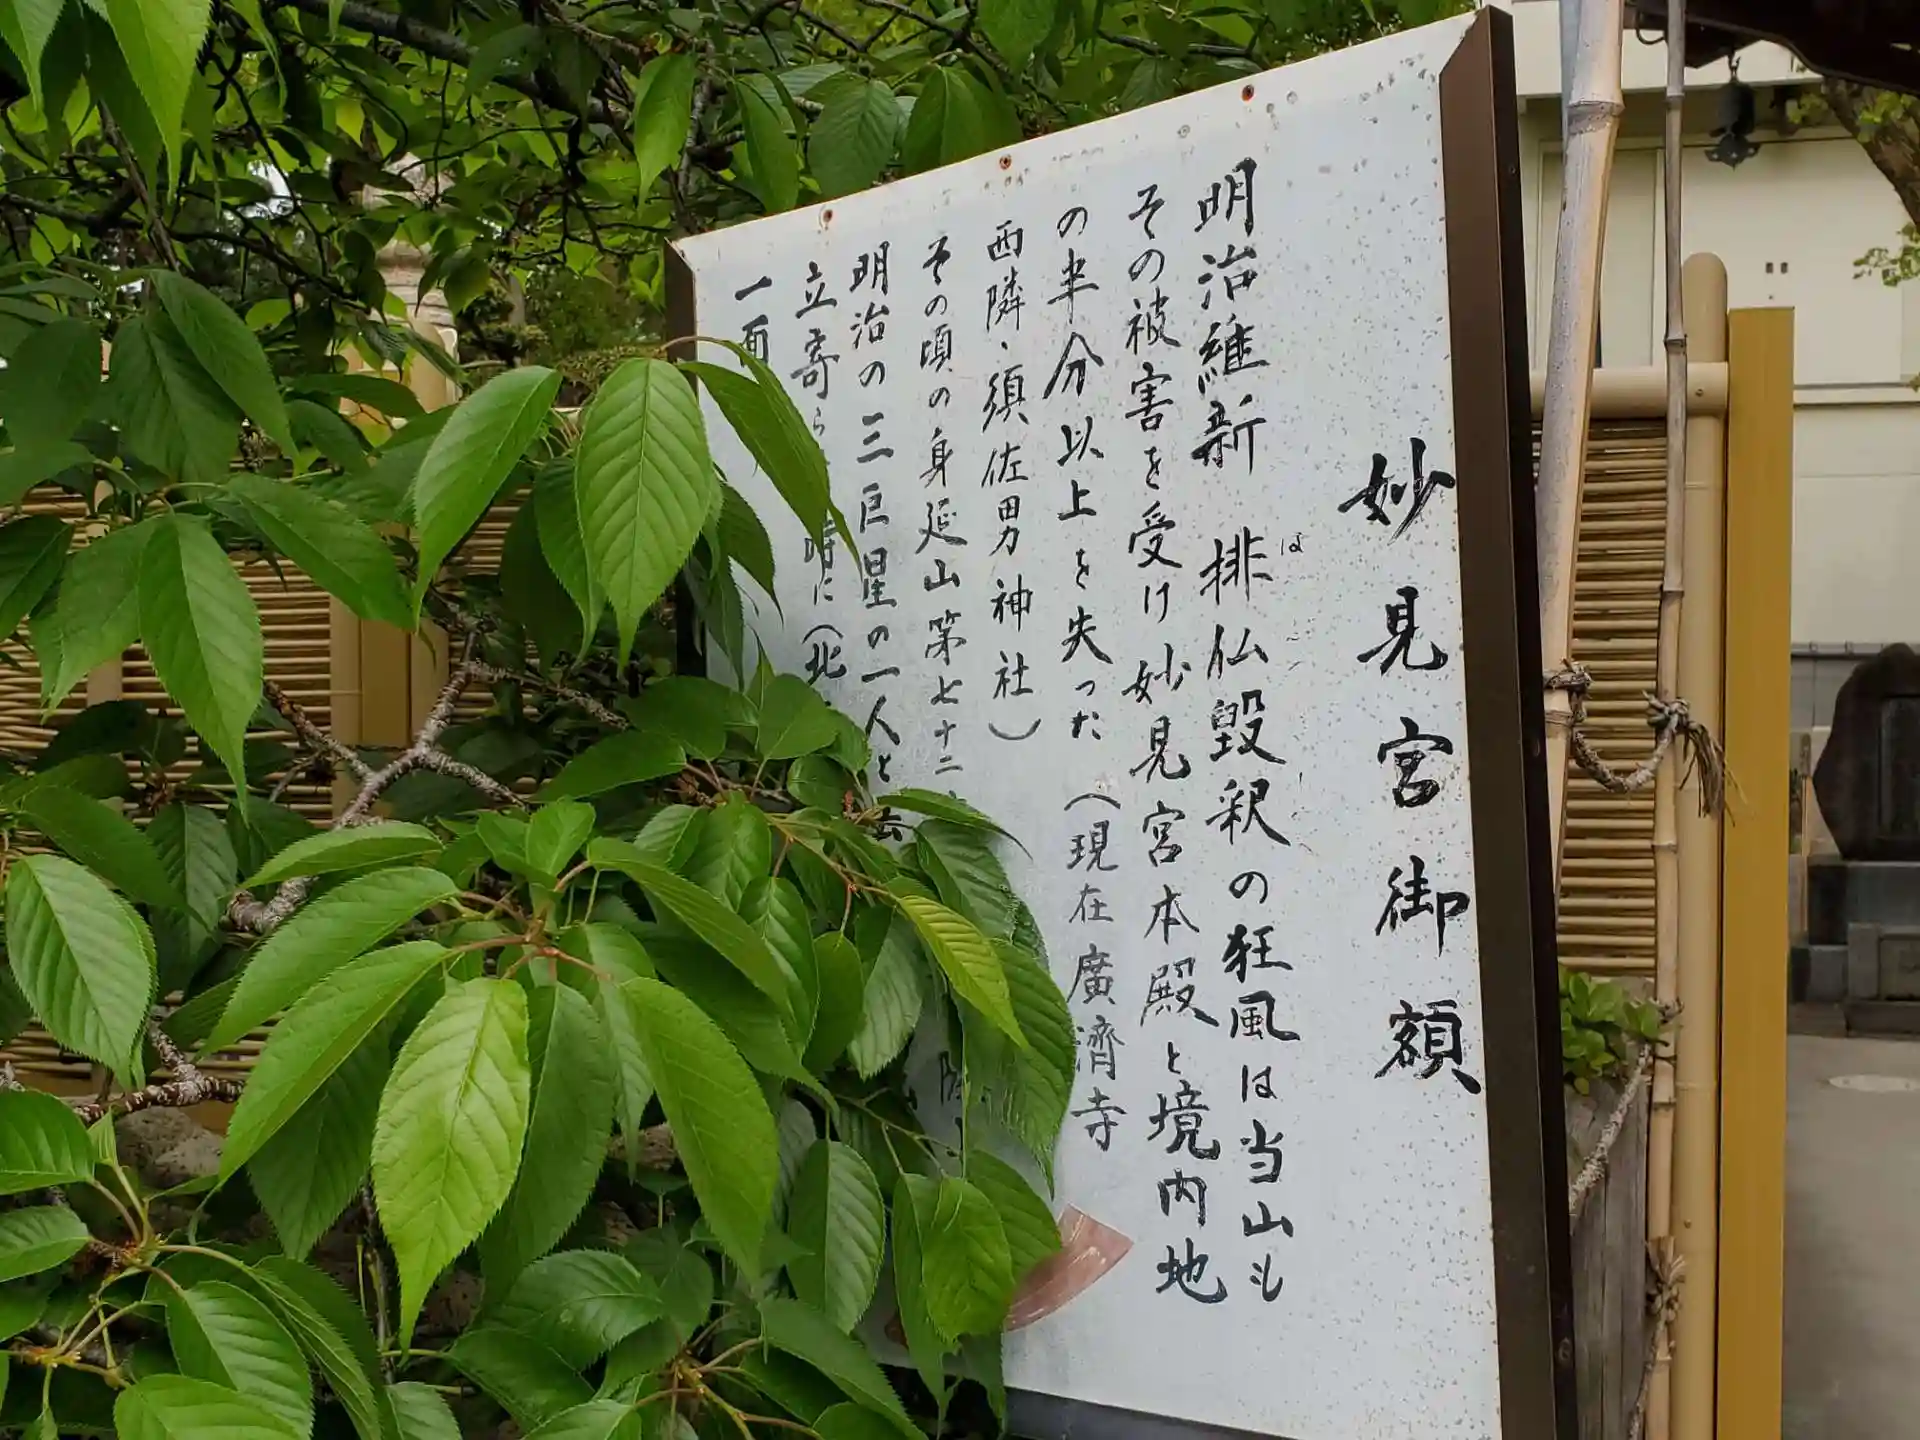 妙見宮御額
明治維新 排仏毀釈の狂風は当山も
その被害を受け妙見宮本殿と境内地
の半分以上を失った(現在廣濟寺
西隣、須佐男神社)
その頃の身延山第七十二
明治の三巨星の一人と云
立寄ら 時に(北
一面